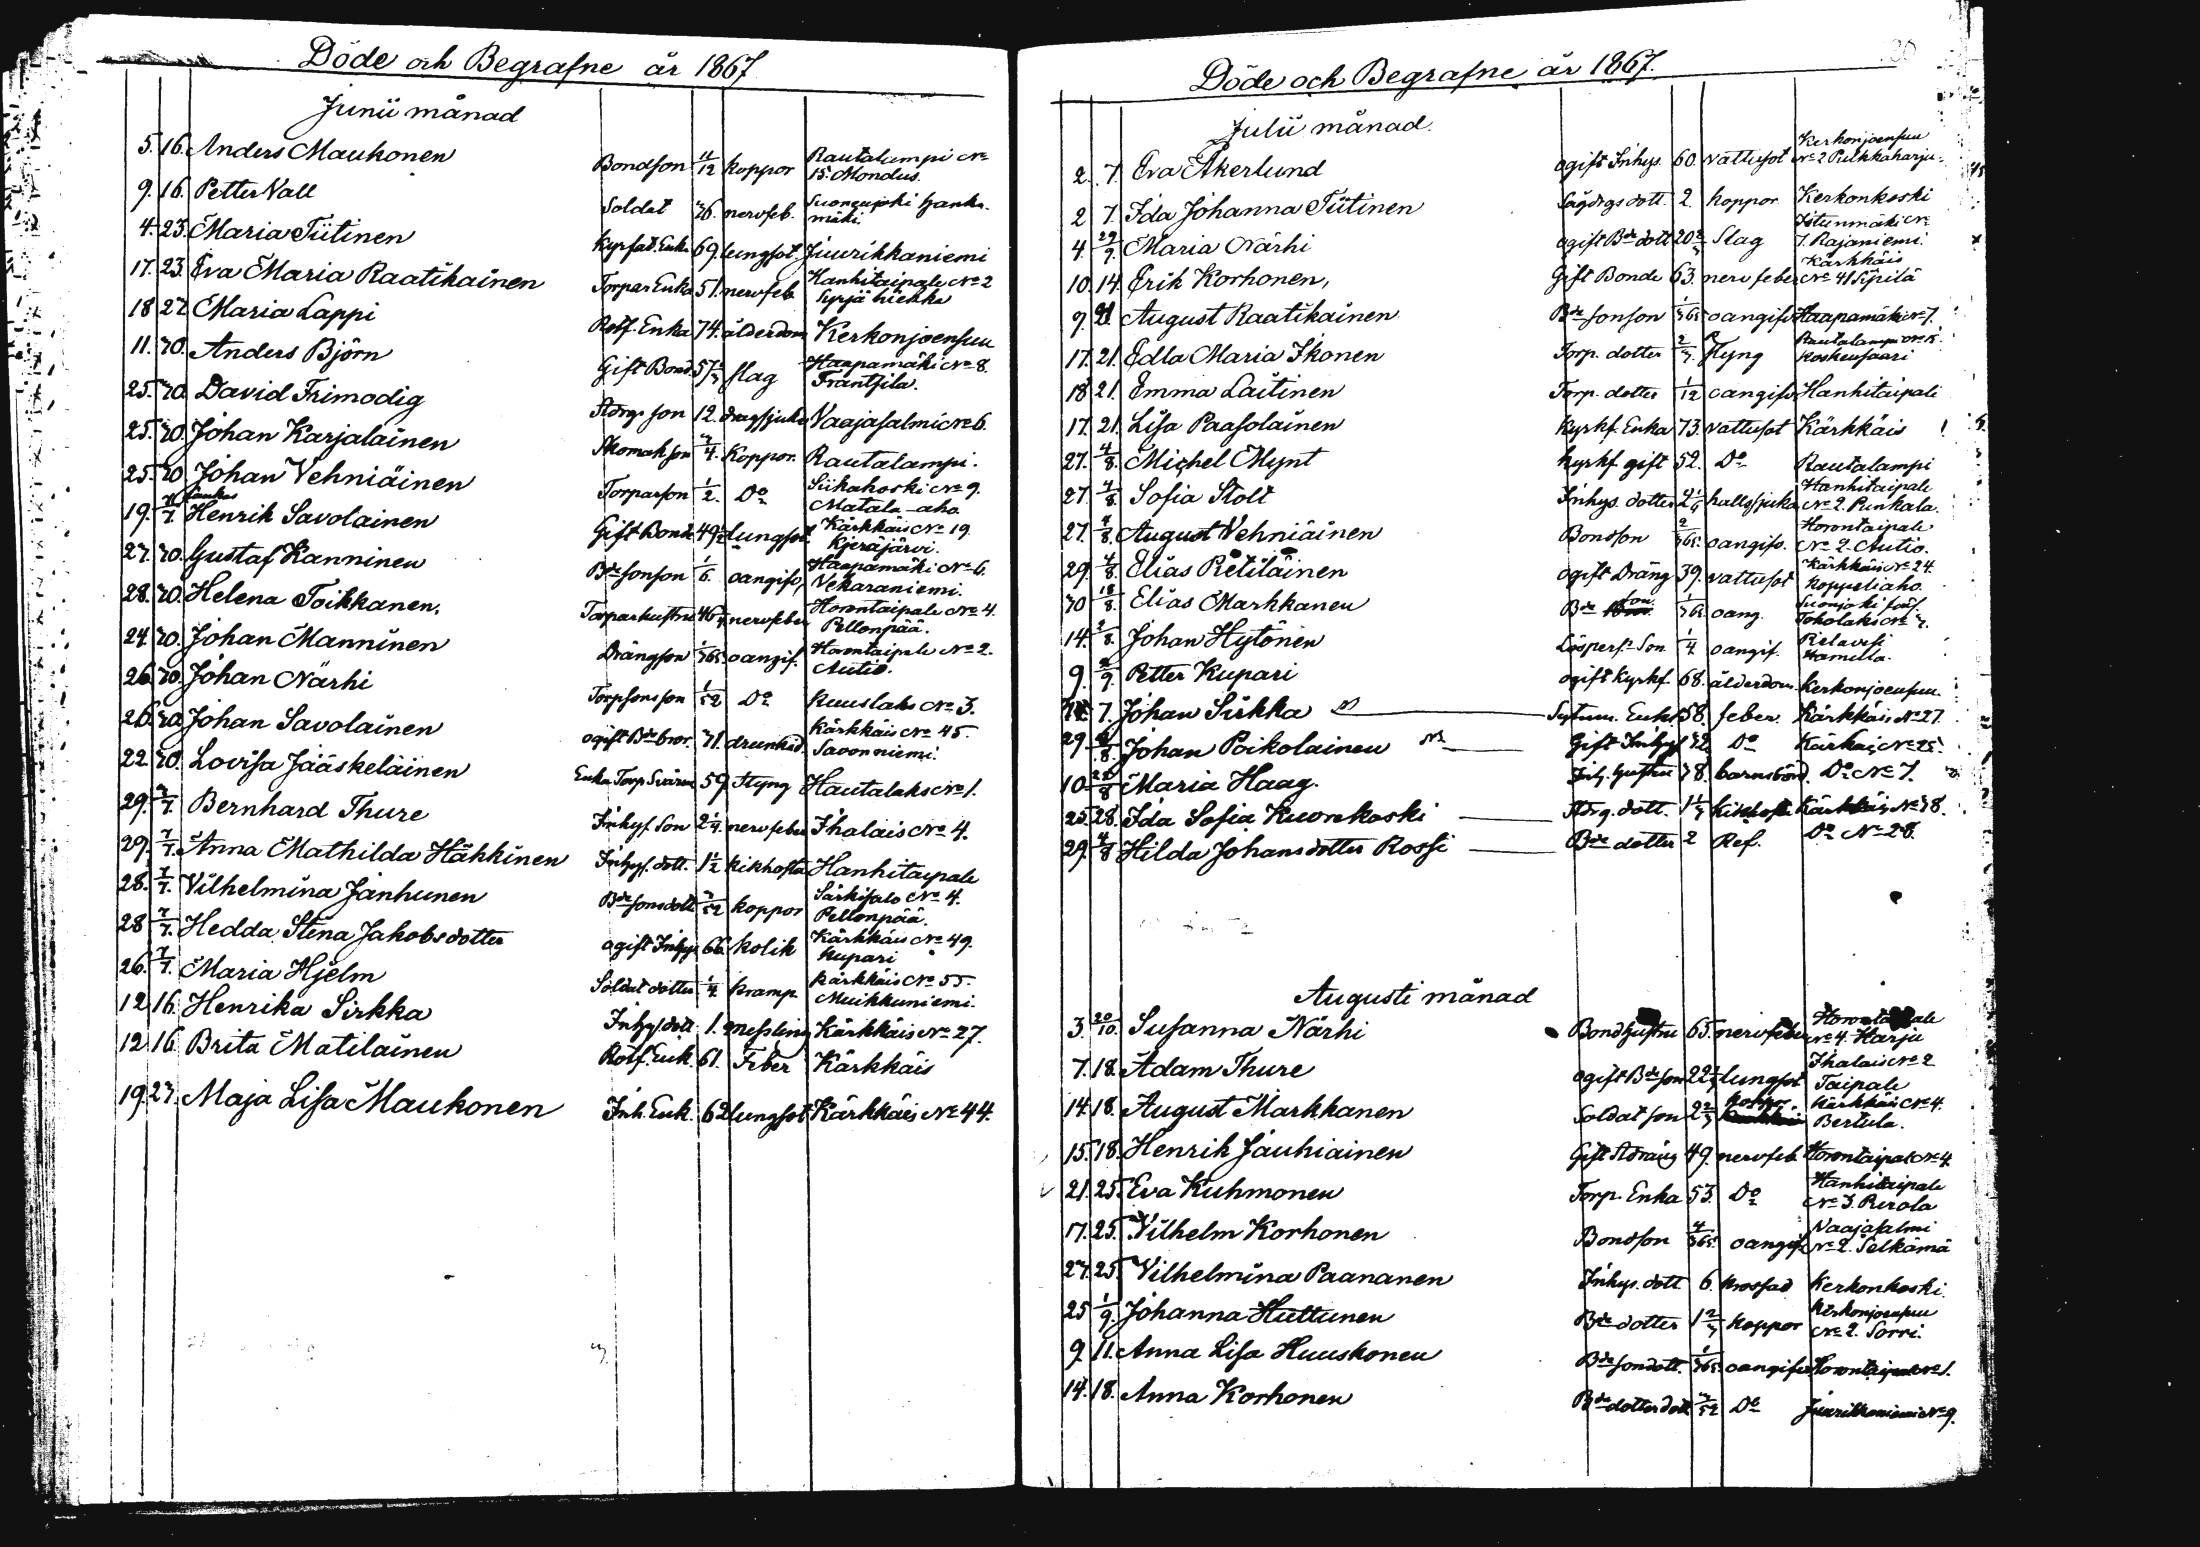 Döde och Begrafne år 1867
Junii månad
5. 16. Anders Mauhonen Bondson 11/12 koppor Rautalampi No 15 Mondus.
9. 16. Petter Vall Soldat 36 nervfeb. Suonenjoki Hanka-mäki
4. 23. Maria Tiitinen kyrfat. Enka 69. lungsot. Juurikkaniemi
17. 23. Eva Maria Raatikainen Torpar Enka 51. nervfeb Hanhitaipale No 2 Syrjä hiekka
18 27 Maria Lappi Rotf. Enka 74. ålderdom Kerkonjoensuu
11. 30. Anders Björn Gift Bond. 57 slag Haapamäki No 8. Frantsila.
25. 30. David Frimodig Stdrgs son 12. dragsjuka Vaajasalmi No 6.
25. 30. Johan Karjalainen Skomak son 3/4. Koppor. Rautalampi.
25. 30 Johan Vehniäinen Torparson 1/2. Do Siikakoski No 9. Matala-aho
19. 7/7. Henrik Savolainen Gift Bonde 49 1/2 lungsot Kärkkäis No 19. Kjeräjärvi.
27. 30. Gustaf Kanninen Bde sonson 1/6 oangifv, Haapamäki No 6. Vekaraniemi.
28. 30. Helena Toikkanen. Torparhustru nervfeber Horontaipale No 4. Pellonpää.
24 30. Johan Manninen Drängson 1/365 oangif. Horontaipale No 2. Autio.
26 30. Johan Närhi Torpsonsson 1/52 Do Kuuslaks No 3.
26. 30. Johan Savolainen ogift Bde bror. 31. drunknad Kärkkäis No 45. Savonniemi.
22 30. Lovisa Jääskeläinen Enka Torp. Svärm 59 styng Hautalaks No 1.
29. 7/7. Bernhard Thure Inhys. Son 2 1/4. nervfeber Ihalais No 4.
29. 7/7. Anna Mathilda Hähkinen Inhys. dott. 1 1/2 kikhosta Hanhitaipale
28. 7/7. Vilhelmina Janhunen Bde sonsdott 3/52 koppor Särkisalo No 4. Pellonpää.
28 7/7. Hedda Stina Jakobsdotter ogift Inhys 66 kolik Kärkkäis No 49. Kupari
26. 7/7. Maria Hjelm Soldat dotter 1/4 kramp Kärkkäis No 55. Muikkuniemi.
12 16. Henrika Sirkka Inhys. dott. 1. messling Kärkkäis No 27.
12 16 Brita Matilainen Rotf. Enk. 61. Feber Kärkkäis
19. 23. Maja Lisa Mauhonen Inh. Enk. 62 lungsot Kärkkäis No 44.
Döde och Begrafne år 1867.
Julii månad.
2. 7. Eva Åkerlund ogift Inhys. 60. vattusot Kerkonjoensuu No 2 Pukkaharju
2 7. Ida Johanna Tiitinen Sågdrgs dott. 2. koppor. Kerkonkoski
4 29/7. Maria Närhi ogift Bde dott 20 Slag Istunmäki No 7. Rajaniemi.
10. 14. Erik Korhonen, Gift Bonde 63. nervfeber Kärkkäis No 41 Sipilä
9 21. August Raatikainen Bde sonson 1/365 oangifv Haapamäki No 7.
17. 21. Edla Maria Ikonen Torp. dotter 2/3 styng Rautalampi No 15 Koskensaari
18 21. Emma Laitinen Torp. dotter 1/12 oangifv Hanhitaipale
17. 21. Lisa Paasolainen Kyrkf. Enka 73. vattusot Kärkkäis
27. 4/8. Michel Mynt kyrkf. gift 52. Do Rautalampi
27. 4/8. Sofia Stolt Inhys. dotter halssjuka Hanhitaipale No 2. Punkala.
27. 4/8. August Vehniäinen Bondson 2/365 oangifv. Horontaipale No 2. Autio.
29. 4/8. Elias Pietiläinen ogift Dräng 39. vattusot Kärkkäis No 24. Koppeliaho.
30 18/8. Elias Markkanen Bde son 1/365 oang. Suonjoki
14. 2/8. Johan Hytönen Lösperf. Son 1/4 oangif. Pielavesi Hamula.
9. Petter Kupari ogift Kyrkf. 68. ålderdom. Kerkonjoensuu.
7. Johan Sirkka Sytnin. Enkl 58. feber. Kärkkäis No 27.
29. Johan Poikolainen Gift Inhys 32 Do Kärkkäis No 25.
10 Maria Haag. Inh. hustru 38. barnsbörd. Do No 7.
25 28. Ida Sofia Kuorekoski Stdrg. dott. kikhosta Kärkkäis No 38.
29. 4/8 Hilda Johansdotter Rossi Bde dotter 2 Ref. Do No 28.
Augusti månad
3. 20/10. Susanna Närhi Bondhustru 65. nervfeber Horontaipale No 4. Harju
7. 18. Adam Thure ogift Bde son lungsot Ihalais No 2 Taipale
14. 18. August Markkanen Soldat son 2 2/3 koppor Kärkkäis No 4. Bertula.
15. 18. Henrik Jauhiainen Gift Stdräng 49. nervfeb. Horontaipale No 4.
21. 25. Eva Kuhmonen Torp. Enka 53. Do Hanhitaipale No 3. Pirola
17. 25. Vilhelm Korhonen Bondson 4/365 oangifv Vaajasalmi No 2. Selkämä
27. 25. Vilhelmina Paananen Inhys. dott. 6. Kerkonkoski.
25 1/9. Johanna Huttunen Bde dotter 1 2/3 koppor Kerkonjoensuu No 2. Sorri.
9. 11. Anna Lisa Huuskonen Bde sondott. 1/365 oangifv Horontaipale No 1.
14. 18. Anna Korhonen Bde dotterdott 3/52 Do Juurikkaniemi No 9.